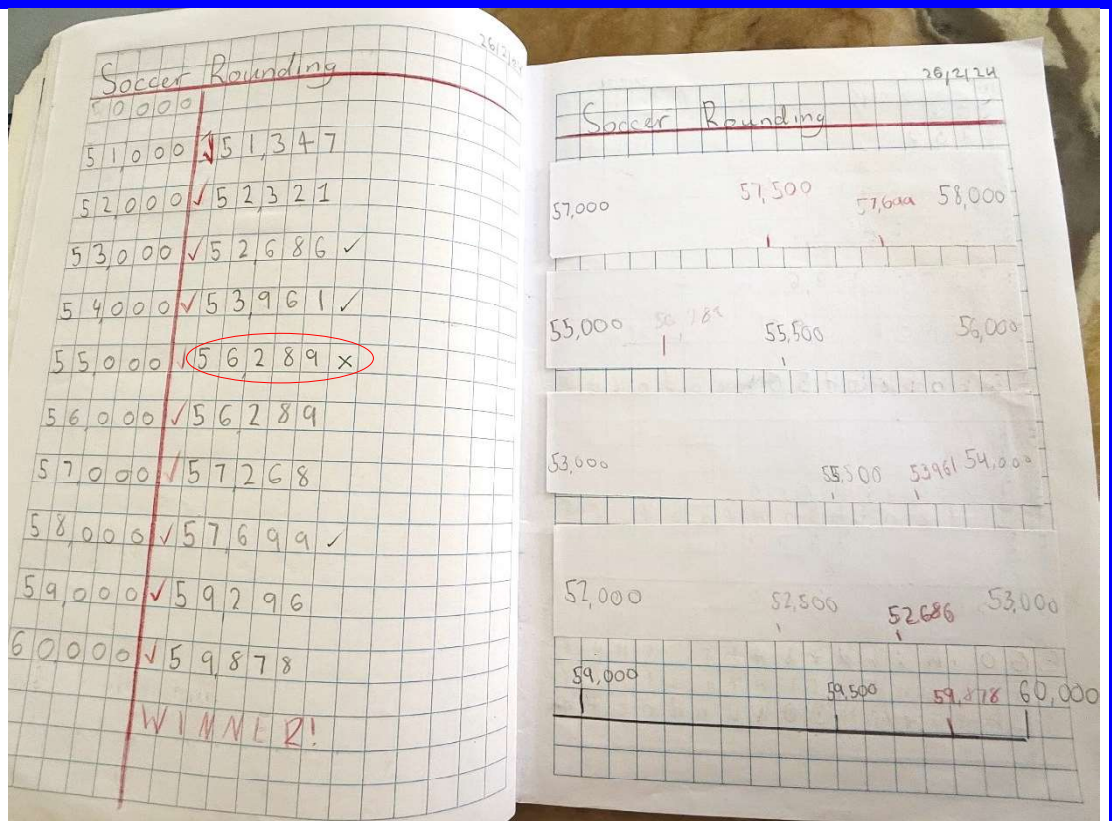 26/2/24
Soccer Rounding
50000
51,000 ✓ 51,347
52,000 ✓ 52,321
53,000 ✓ 52,686 ✓
54,000 ✓ 53,961 ✓
55,000 ✓ 56,289 ×
56,000 ✓ 56,289
57,000 ✓ 57,268
58,000 ✓ 57,699 ✓
59,000 ✓ 59,296
60,000 ✓ 59,878
WINNER!
26/2/24
Soccer Rounding
57,000 57,500 57,699 58,000
55,000 55,500 56,000
53,000 53961 54,000
52,000 52,500 52686 53,000
59,000 59,500 59,878 60,000